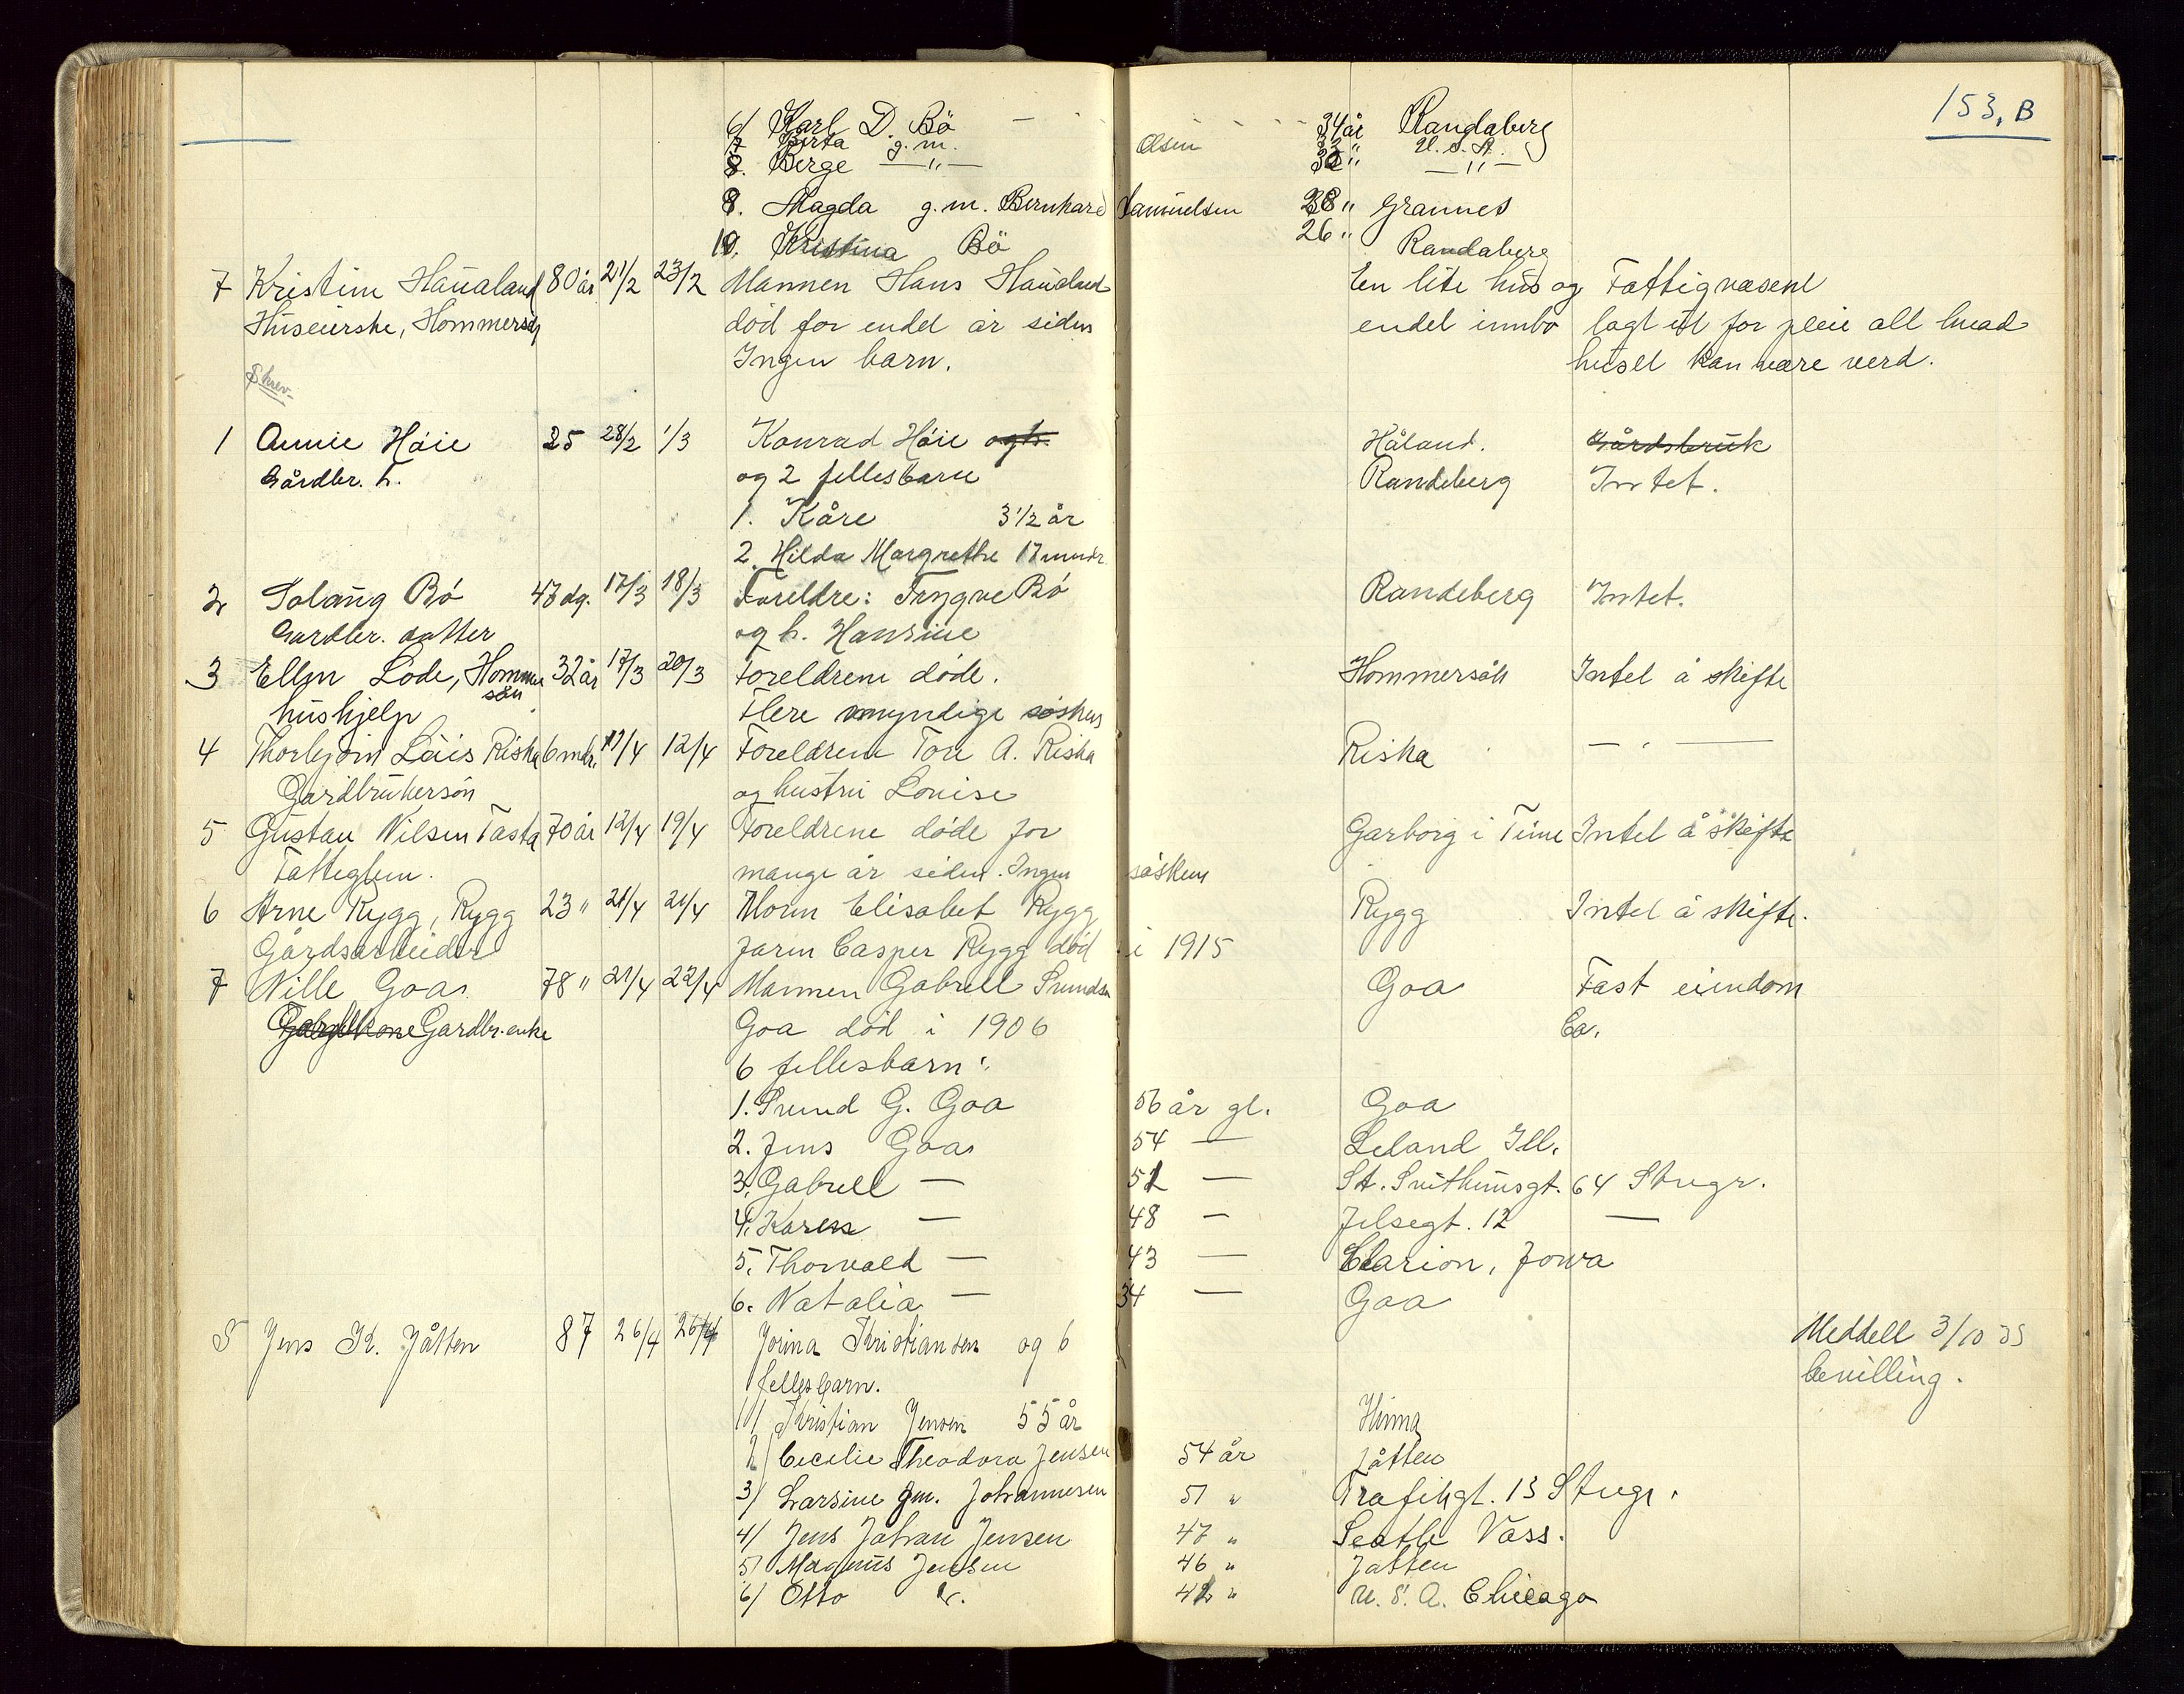 153, B
6/ Karl D. Bö — 34 år Randaberg
7 Berta g.m. Olsen 32 " U.S.A.
8. Berge —"— 30 " —"—
9. Magda g.m. Bernhard Samuelsen 28 " Grannes
10. Kristina Bö 26 " Randaberg
7 Kristine Haualand 80 år 21/2 23/2 Mannen Hans Haualand En lite hus og Fattigvesenet
Huseierske, Hommersåk död for endel år siden endel innbo lagt ut for pleie alt hvad
Ingen barn. huset kan være verd.
Skrev.
1 Annie Höie 25 28/2 1/3 Konrad Höie ogh. Håland. Gårdsbruk
Gårdbr. h. og 2 fellesbarn Randeberg Intet.
1. Kåre 3 1/2 år
2. Hilda Margrethe 17 mndr
2 Solaug Bö 47 dg. 17/3 18/3 Foreldre: Trygve Bö Randeberg Intet.
Gardbr. datter og h. Hansine
3 Ellen Lode, Hommersån 32 år 17/3 20/3 Foreldrene döde. Hommersåk Intet å skifte
hushjelp Flere myndige söskens
4 Thorbjörn Laüis Riska 6 mdr. 11/4 12/4 Foreldrene Tore A. Riska Riska — " —
Gardbrukersön og hustru Louise
5 Gustav Nilsen Tasta 70 år 12/4 19/4 Foreldrene döde for Garborg i Time Intet å skifte
Fatteglem. mange år siden. Ingen söskens
6 Arne Rygg, Rygg 23 " 21/4 21/4 Moren Elisabet Rygg Rygg Intet å skifte.
Gårdsarbeider faren Casper Rygg död i 1915
7 Nille Goa 78 " 21/4 22/4 Mannen Gabriel Svendsen Goa Fast eiendom
Gardbr. enke Goa död i 1906 Ca.
6 fellesbarn:
1. Svend G. Goa 56 år gl. Goa
2. Jens Goa 54 — Leland Ill.
3. Gabriel — 51 — St. Svithunsgt. 64 Stvgr.
4. Karen — 48 — Jelsegt. 12 —
5. Thorvald — 43 — Clarion, Jowa
6. Natalia — 34 — Goa
8 Jens K. Jåtten 87 26/4 26/4 Jorina Kristiansen og 6 Meddelt 3/10 35
fellesbarn. bevilling.
1/ Kristian Jensen 55 år Hinna
2/ Cecilie Theodora Jensen 54 år Jåtten
3/ Larsine gm. Johannesen 51 " Trafikgt. 13 Stvgr.
4/ Jens Johan Jensen 47 " Seatle Vass.
5/ Magnus Jensen 46 " Jåtten
6/ Otto " 42 " U.S.A. Chicago